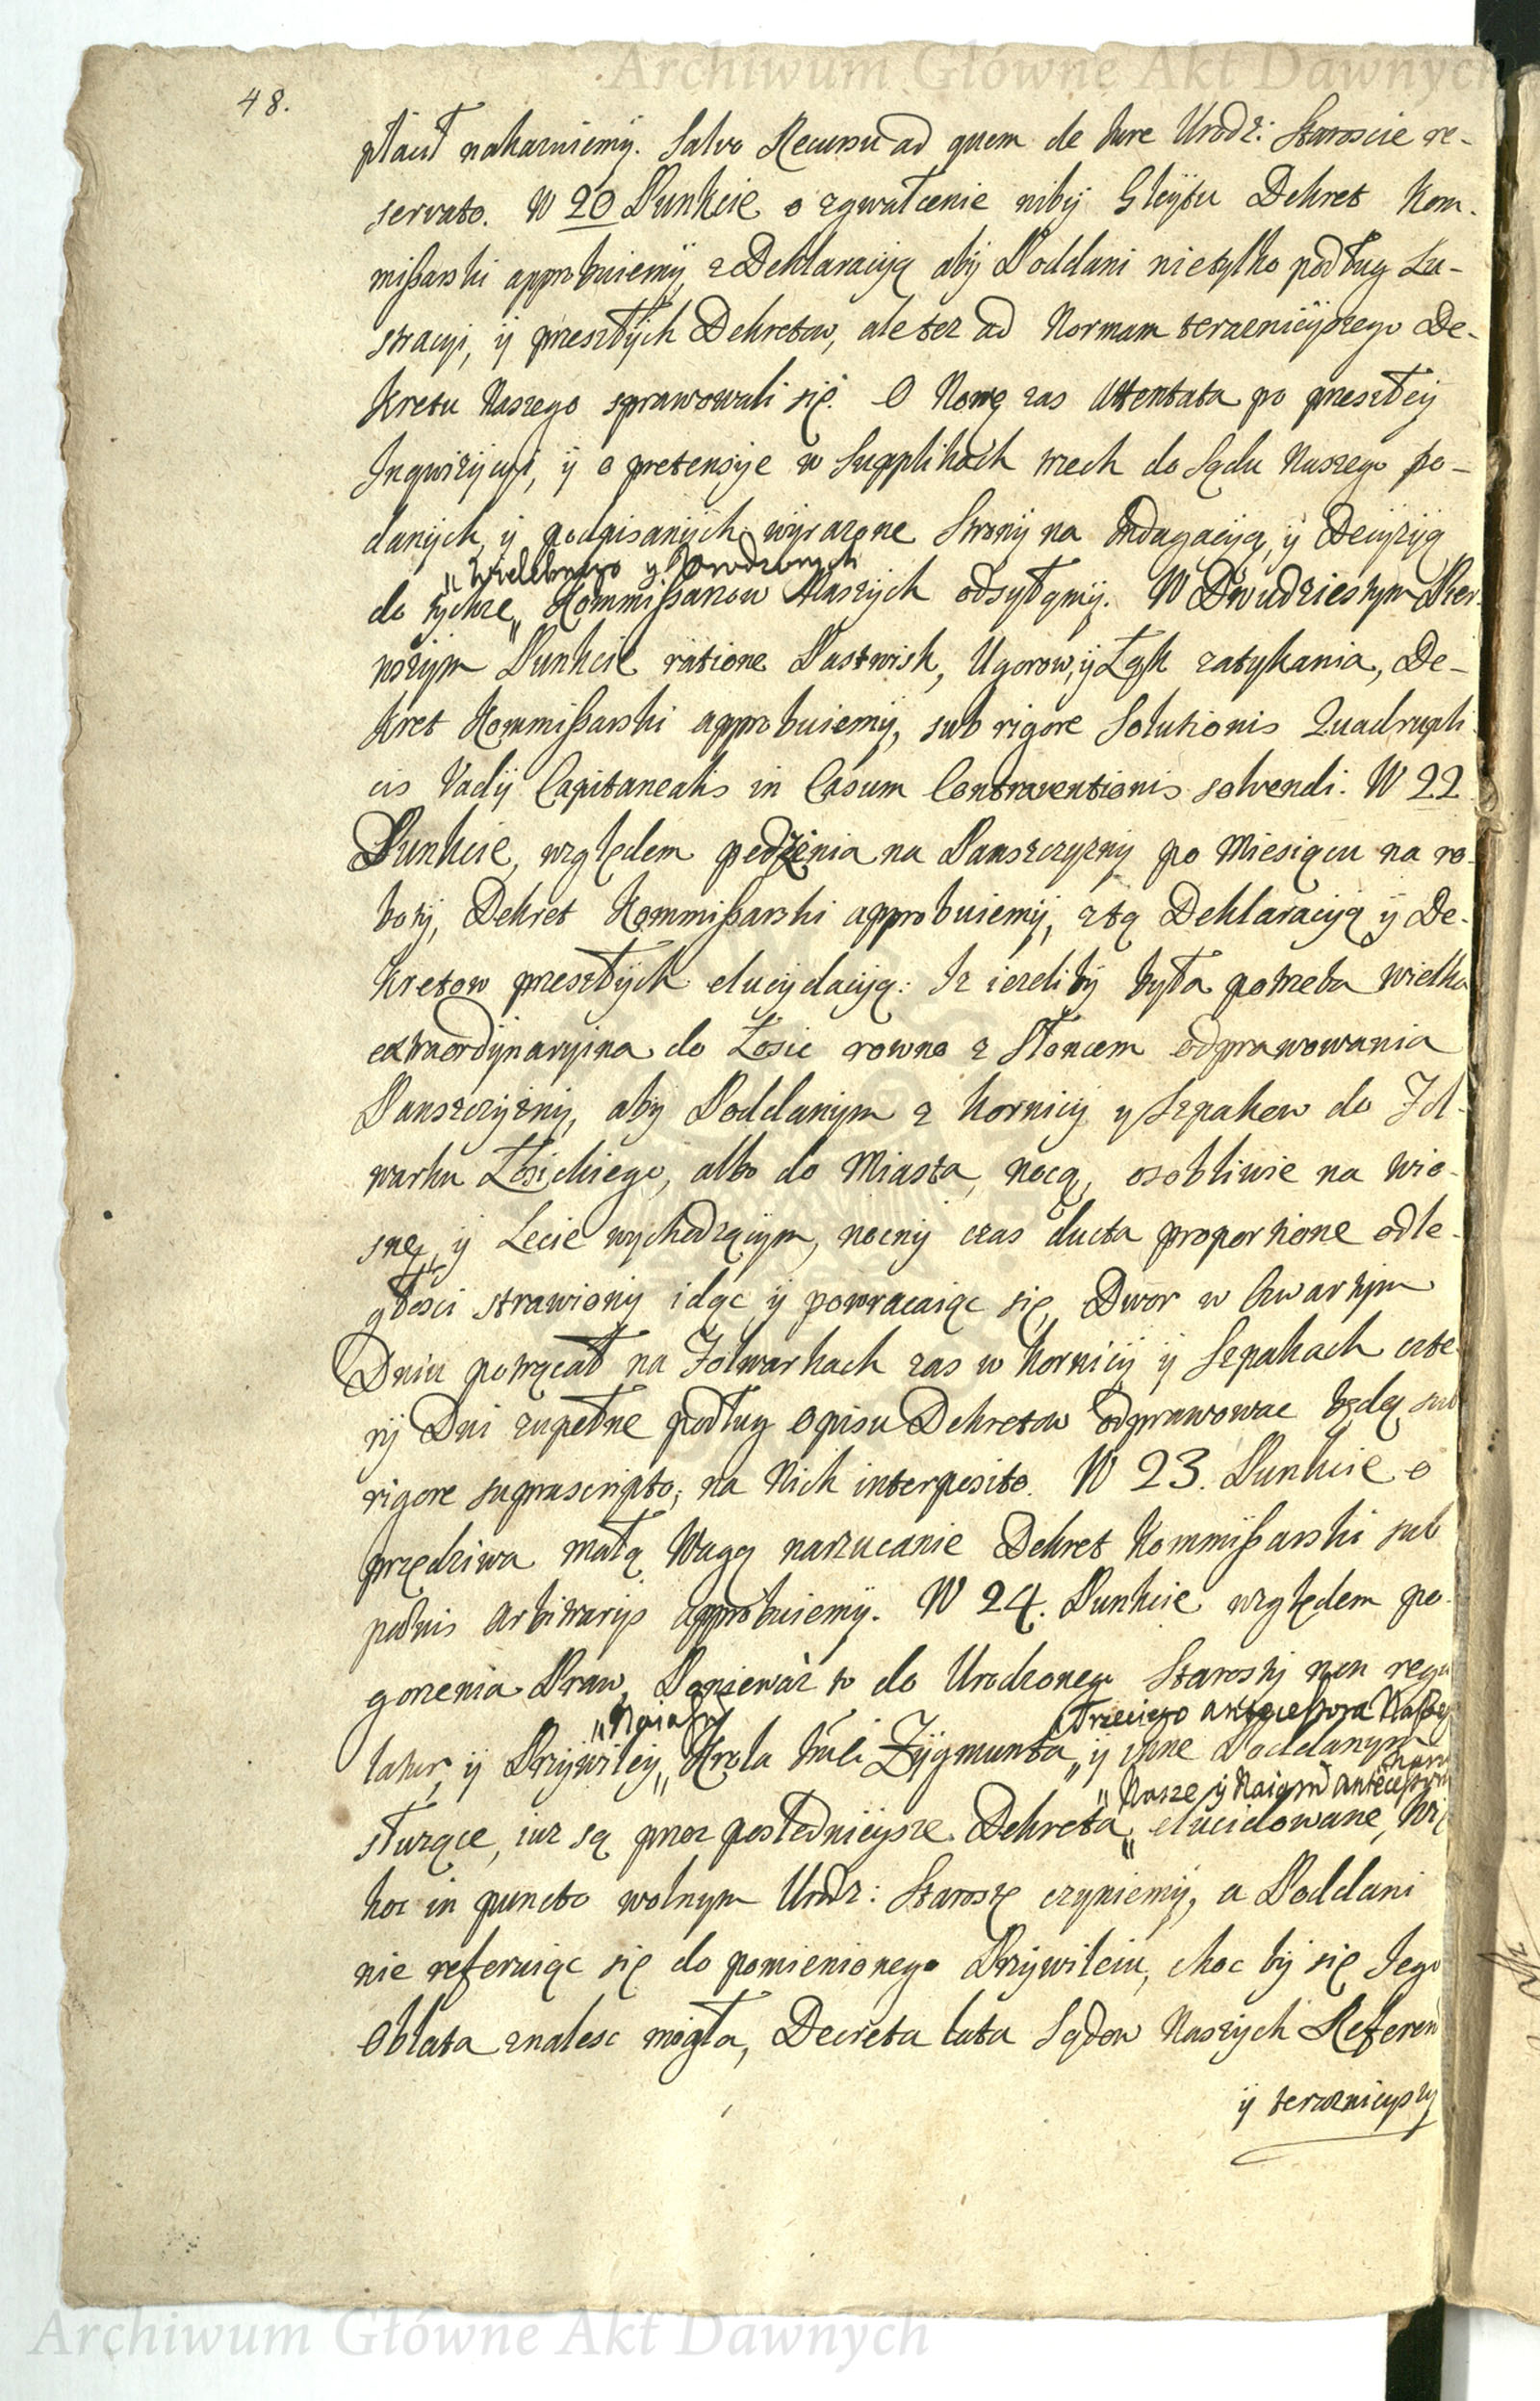 Archiwum Główne Akt Dawnych
48.
płacił nakazuiemÿ. Salvo Recursu ad quem de Iure Urodz: Staroscie re-
servato. W 20 Punkcie o zgwałcenie nibÿ Gleÿtu Dekret Kom-
mißarski approbuiemÿ, z Deklaracÿą abÿ Poddani nietylko podług Lu-
stracÿi, ÿ przeszłÿch Dekretow, ale tez ad Normam teraznieÿszego De-
kretu Naszego sprawowali się. O Nowe zas Attentata po przeszłeÿ
Inqwizÿcÿi, ÿ o pretensÿe w Supplikach trzech do Sądu Naszego po-
danÿch, ÿ podpisanÿch wÿrazone Stronÿ na Indagacÿą, ÿ Decÿzÿą
„Wielebnego y Urodzonych
do tÿchze „ Kommißarzow Naszÿch odsyłamÿ. W Dwudziestym Pier-
wszÿm Punkcie ratione Pastwisk, Ugorow, ÿ Łąk zatykania, De-
kret Kommißarski approbuiemÿ, sub rigore Solutionis Quadrupli-
cis Vadÿ Capitanealis in Casum Contraventionis solvendi. W 22
Punkcie, względem pędzenia na Panszczyznÿ po Miesiącu na ro-
botÿ, Dekret Kommißarski approbuiemÿ, z tą Deklaracÿą ÿ De-
kretow przeszłÿch elucÿdacÿą: Iz iezeli bÿ była potrzeba wielka
extraordÿnarÿina do Łosic rowno z Słoncem odprawowania
Panszczÿznÿ, abÿ Poddanÿm z Kornicÿ y Szpakow do Fol-
warku Łosickiego, albo do Miasta, nocą, osobliwie na wio-
snę, ÿ Lecie wychodzącym, nocnÿ czas ducta proportione odle-
głosci strawionÿ idąc ÿ powracaiąc się, Dwor w Czwartÿm
Dniu potrącał na Folwarkach zas w Kornicÿ ÿ Szpakach czte-
rÿ Dni zupełne podług Opisu Dekretow odprawowac będą sub
rigore suprascripto, na Nich interposito. W 23. Punkcie o
przędziwa małą Wagą narzucanie Dekret Kommißarski sub
pœnis Arbitrarÿs approbuiemÿ. W 24. Punkcie względem po-
gorzenia Praw, Poniewaz to do Urodzonego Starostÿ non regu-
„Naiasń Trzeciego antecessora Naszeg
latur, ÿ Przÿwileÿ „ Krola Imći Zÿgmunta „ ÿ inne Poddanym
„Nasze ÿ Naiasń antecessorow
słuzące, iuz są przez poslednieÿsze Dekreta „ elucidowane,
hoc in puncto wolnym Urodz: Starostę czyniemÿ, a Poddani
nie referuiąc się do pomienionego Przÿwileiu, choc bÿ się Iego
Oblata znalesc mogła, Decreta lata Sądow Naszÿch Referen
ÿ teraznieyszy
Archiwum Główne Akt Dawnych